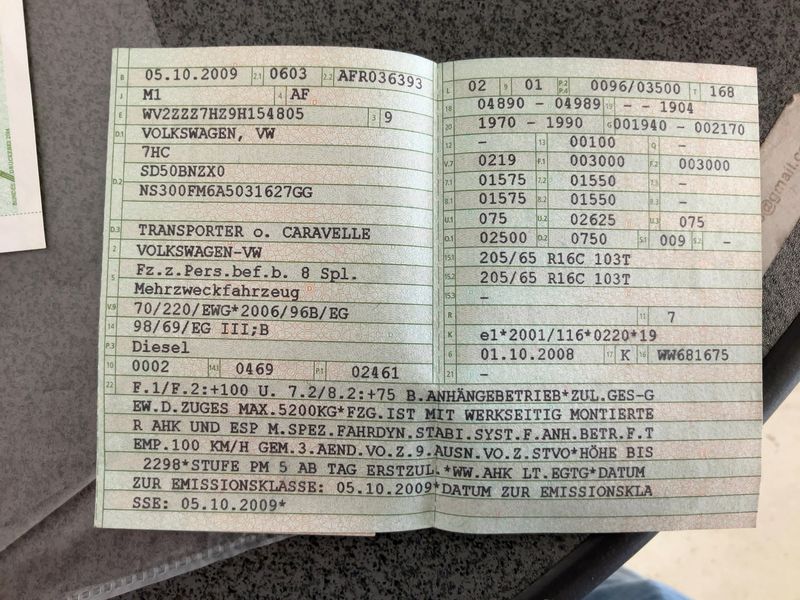 B 05.10.2009 2.1 0603 2.2 AFR036393
J M1 4 AF
E WV2ZZZ7HZ9H154805 3 9
D.1 VOLKSWAGEN, VW
7HC
D.2 SD50BNZX0
NS300FM6A5031627GG
D.3 TRANSPORTER o. CARAVELLE
2 VOLKSWAGEN-VW
5 Fz.z.Pers.bef.b. 8 Spl.
Mehrzweckfahrzeug
V.9 70/220/EWG*2006/96B/EG
14 98/69/EG III;B
P.3 Diesel
10 0002 14.1 0469 P.1 02461
L 02 9 01 P.2 P.4 0096/03500 T 168
18 04890 - 04989 19 - - 1904
20 1970 - 1990 G 001940 - 002170
12 - 13 00100 Q -
V.7 0219 F.1 003000 F.2 003000
7.1 01575 7.2 01550 7.3 -
8.1 01575 8.2 01550 8.3 -
U.1 075 U.2 02625 U.3 075
O.1 02500 O.2 0750 S.1 009 S.2 -
15.1 205/65 R16C 103T
15.2 205/65 R16C 103T
15.3 -
R 11 7
K e1*2001/116*0220*19
6 01.10.2008 17 K 16 WW681675
21 -
22 F.1/F.2:+100 U. 7.2/8.2:+75 B.ANHÄNGEBETRIEB*ZUL.GES-G
EW.D.ZUGES MAX.5200KG*FZG.IST MIT WERKSEITIG MONTIERTE
R AHK UND ESP M.SPEZ.FAHRDYN.STABI.SYST.F.ANH.BETR.F.T
EMP.100 KM/H GEM.3.AEND.VO.Z.9.AUSN.VO.Z.STVO*HÖHE BIS
2298*STUFE PM 5 AB TAG ERSTZUL.*WW.AHK LT.EGTG*DATUM
ZUR EMISSIONSKLASSE: 05.10.2009*DATUM ZUR EMISSIONSKLA
SSE: 05.10.2009*
@gmail.c